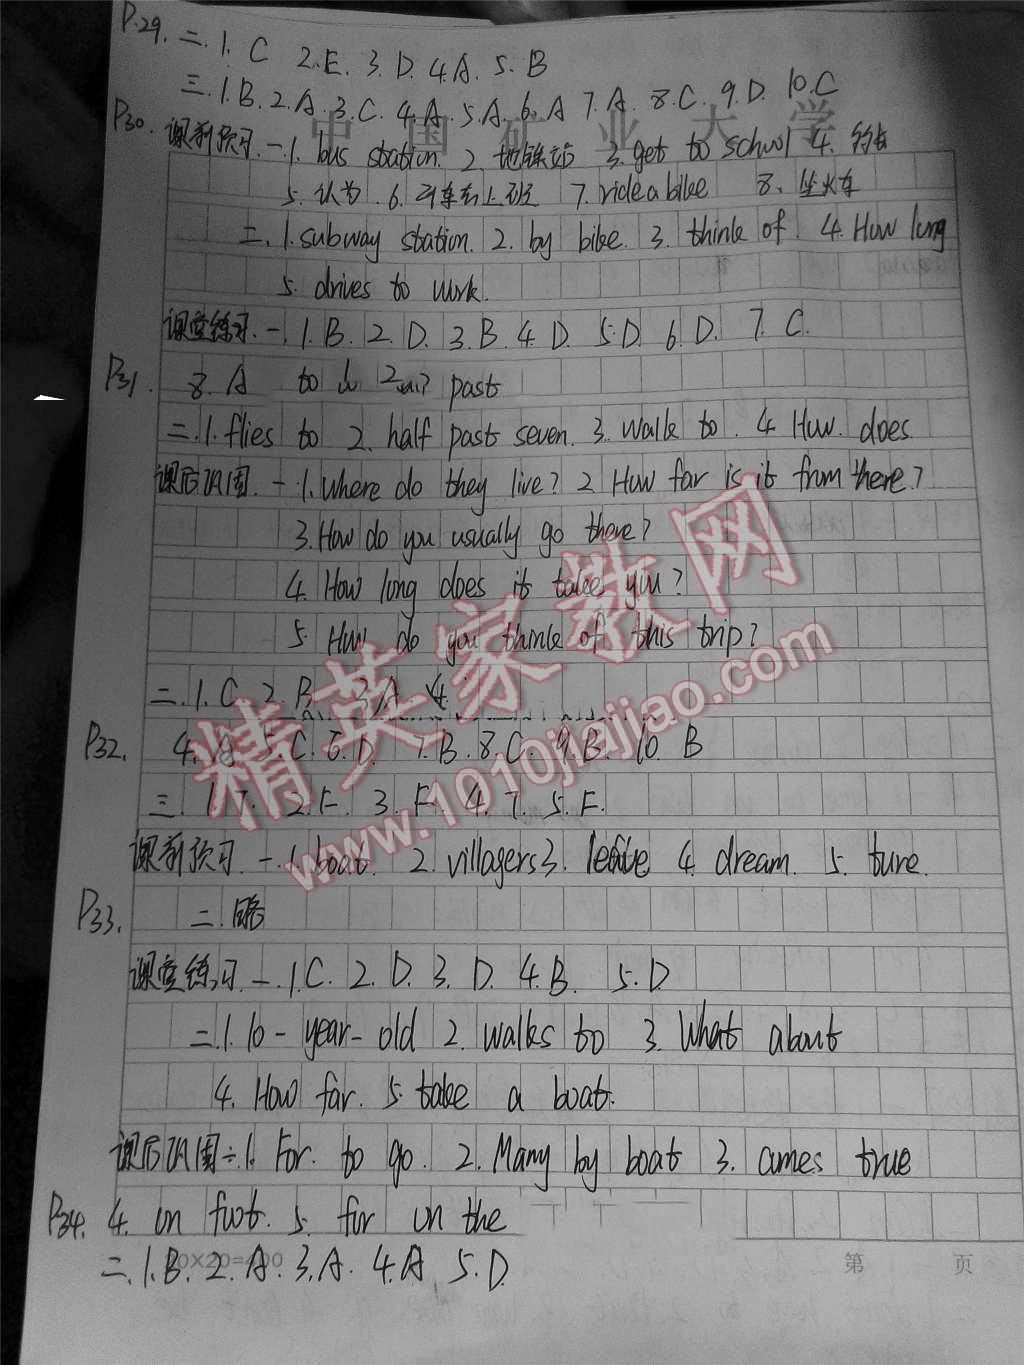 P.29. 二. 1. C 2. E. 3. D. 4. A. 5. B
三. 1. B. 2. A. 3. C. 4. A. 5. A. 6. A 7. A. 8. C. 9. D. 10. C
中国矿业大学
P30. 课前预习. 一. 1. bus station. 2. 地铁站 3. get to school 4. 约
5. 认为. 6. 开车去上班 7. ride a bike 8. 坐火车
二. 1. subway station. 2. by bike. 3. think of. 4. How long
5. drives to work.
课堂练习. 一. 1. B. 2. D. 3. B. 4. D. 5. D. 6. D. 7. C.
P31. 8. A to past
二. 1. flies to 2. half past seven. 3. walk to. 4. How. does.
课后巩固. 一. 1. Where do they live? 2 How far is it from there?
3. How do you usually go there?
4. How long does it take you?
5. How do you think of this trip?
二. 1. C 2. B 3. A 4.
P32. 4. A 5. C. 6. D. 7. B. 8 C. 9. B. 10. B
三. 1. T. 2. F. 3. F. 4. T. 5. F.
课前预习 一. 1. boat. 2. villagers 3. leave 4. dream. 5. ture.
P33. 二. 略
课堂练习. 一. 1. C. 2. D. 3. D. 4. B. 5. D
二. 1. 10-year-old 2. walks to 3. What about
4. How far. 5. take a boat.
课后巩固 一. 1. For. to go. 2. Many by boat 3. comes true
P34. 4. on foot. 5. for on the
二. 1. B. 2. A. 3. A. 4. A 5. D.
20×20=400 第 页
精英家教网
www.1010jiajiao.com